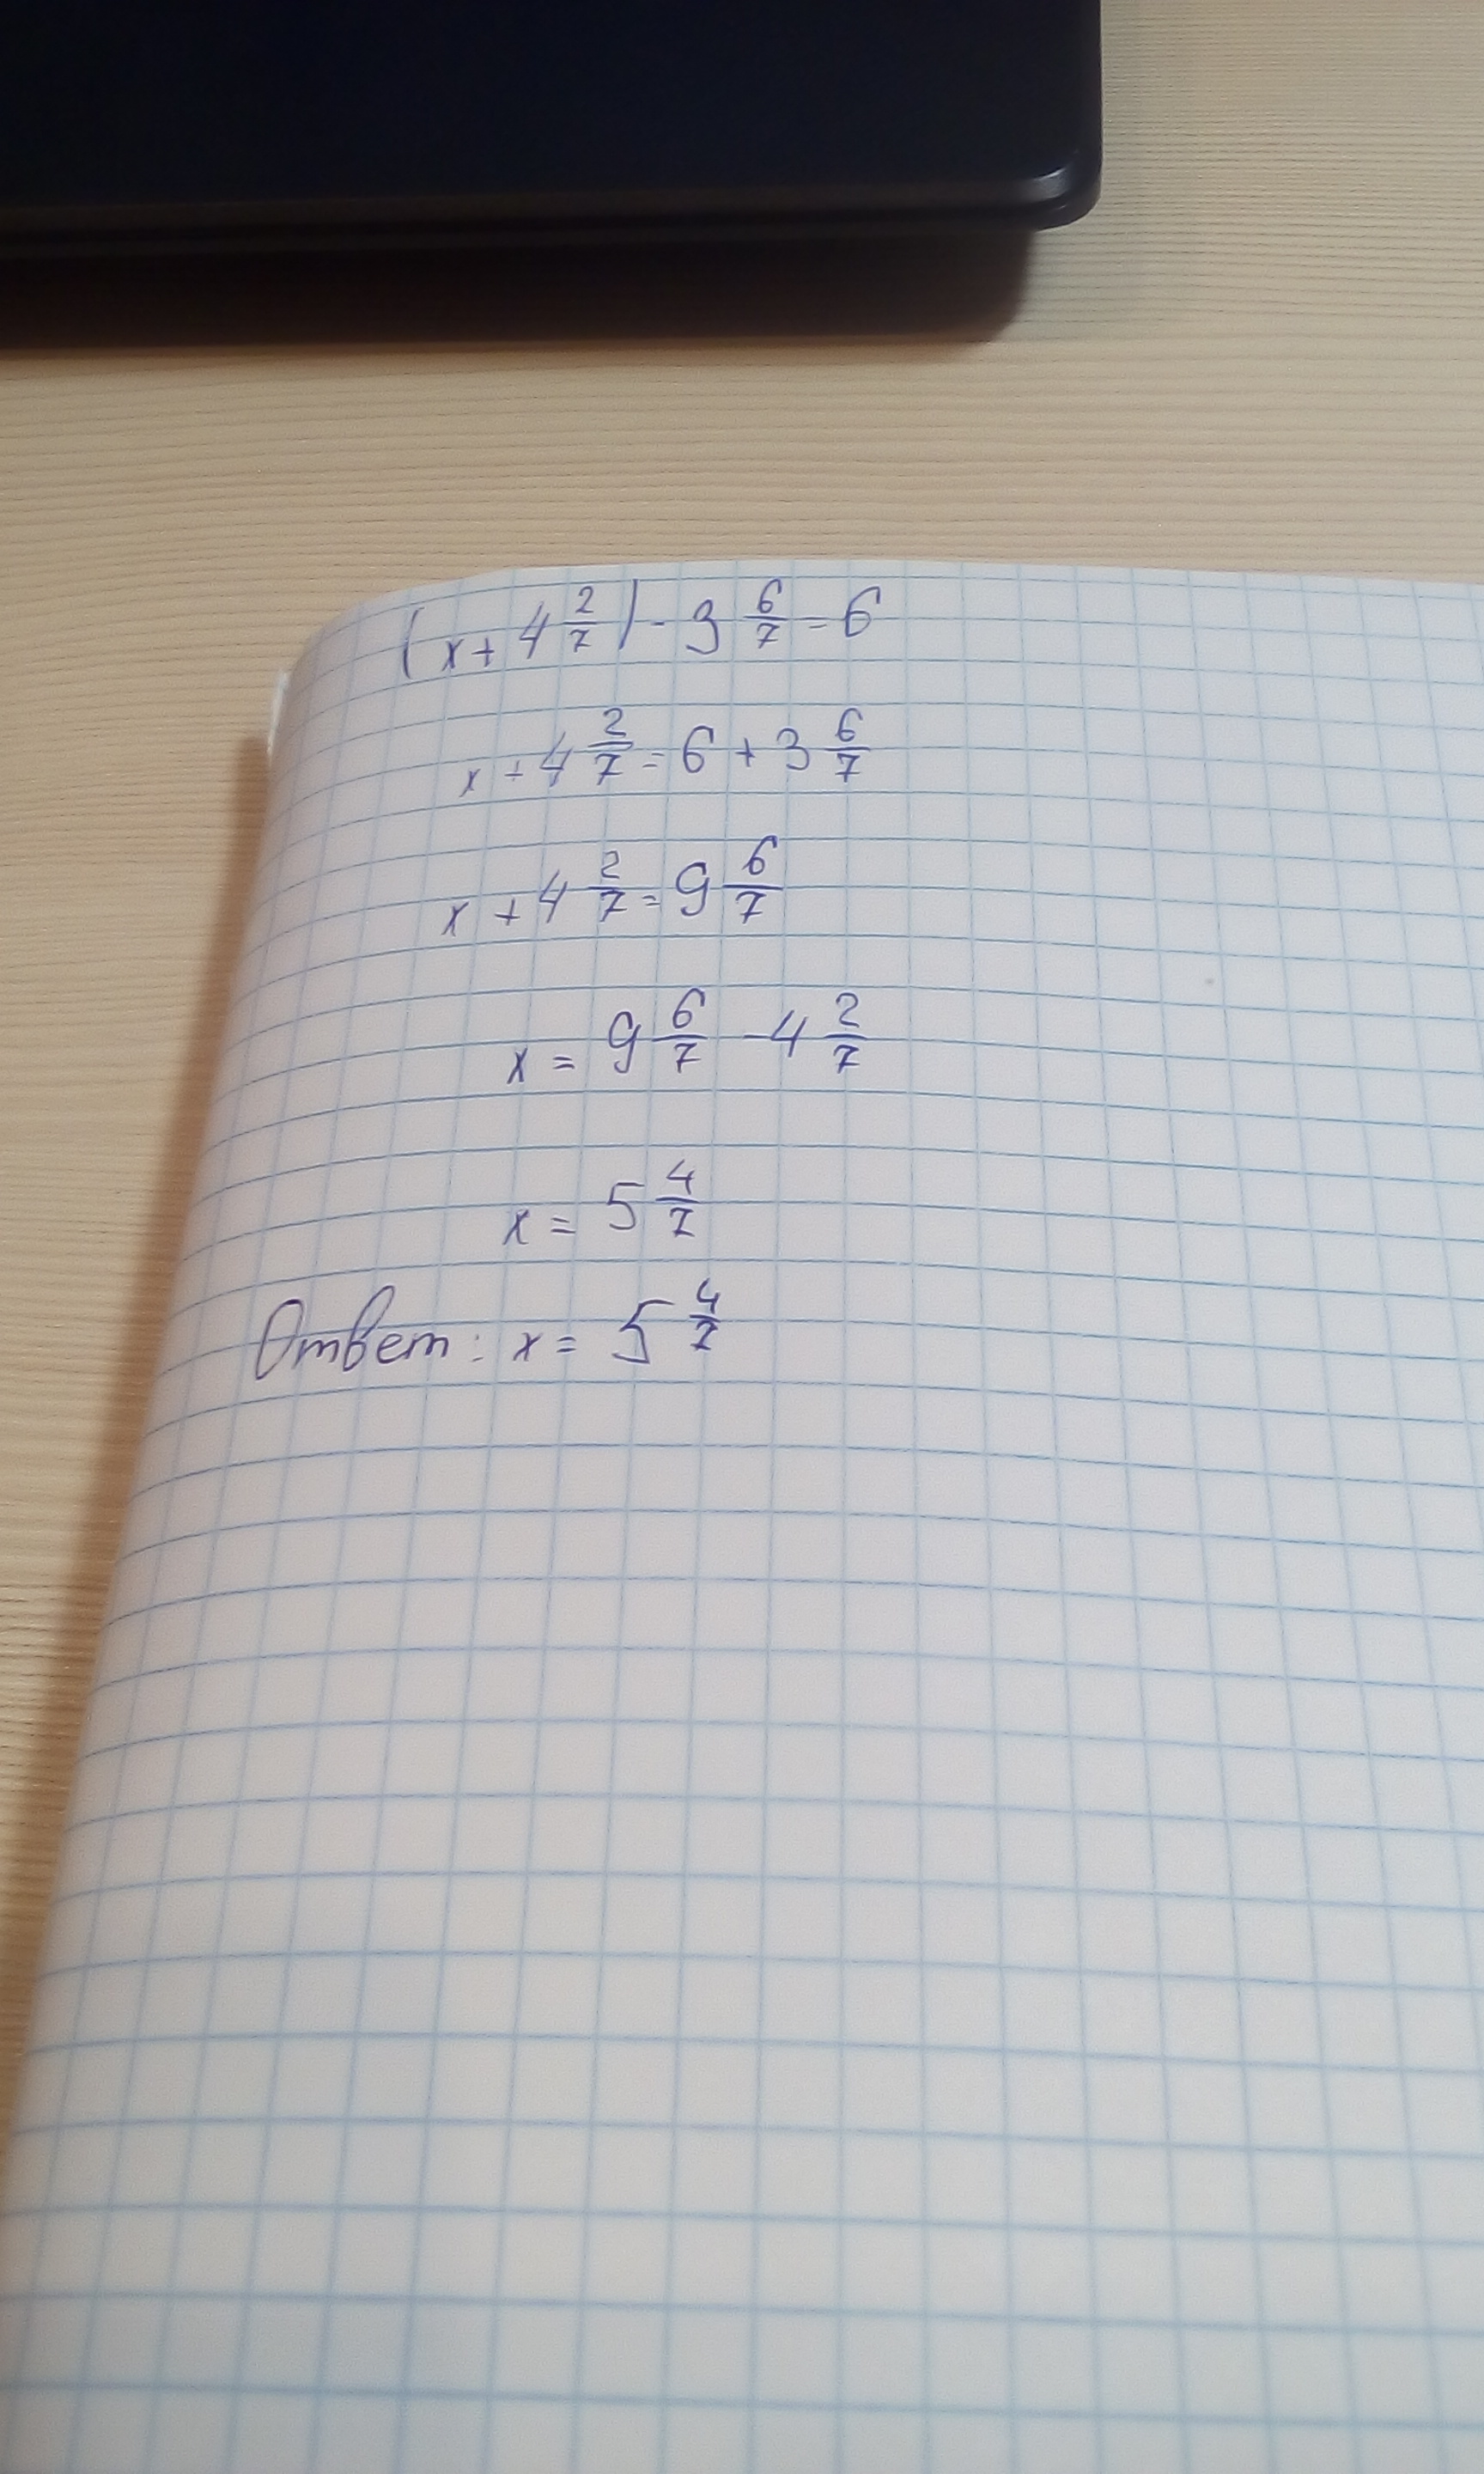 (x + 4 2/7) - 3 6/7 = 6
x + 4 2/7 = 6 + 3 6/7
x + 4 2/7 = 9 6/7
x = 9 6/7 - 4 2/7
x = 5 4/7
Ответ: x = 5 4/7